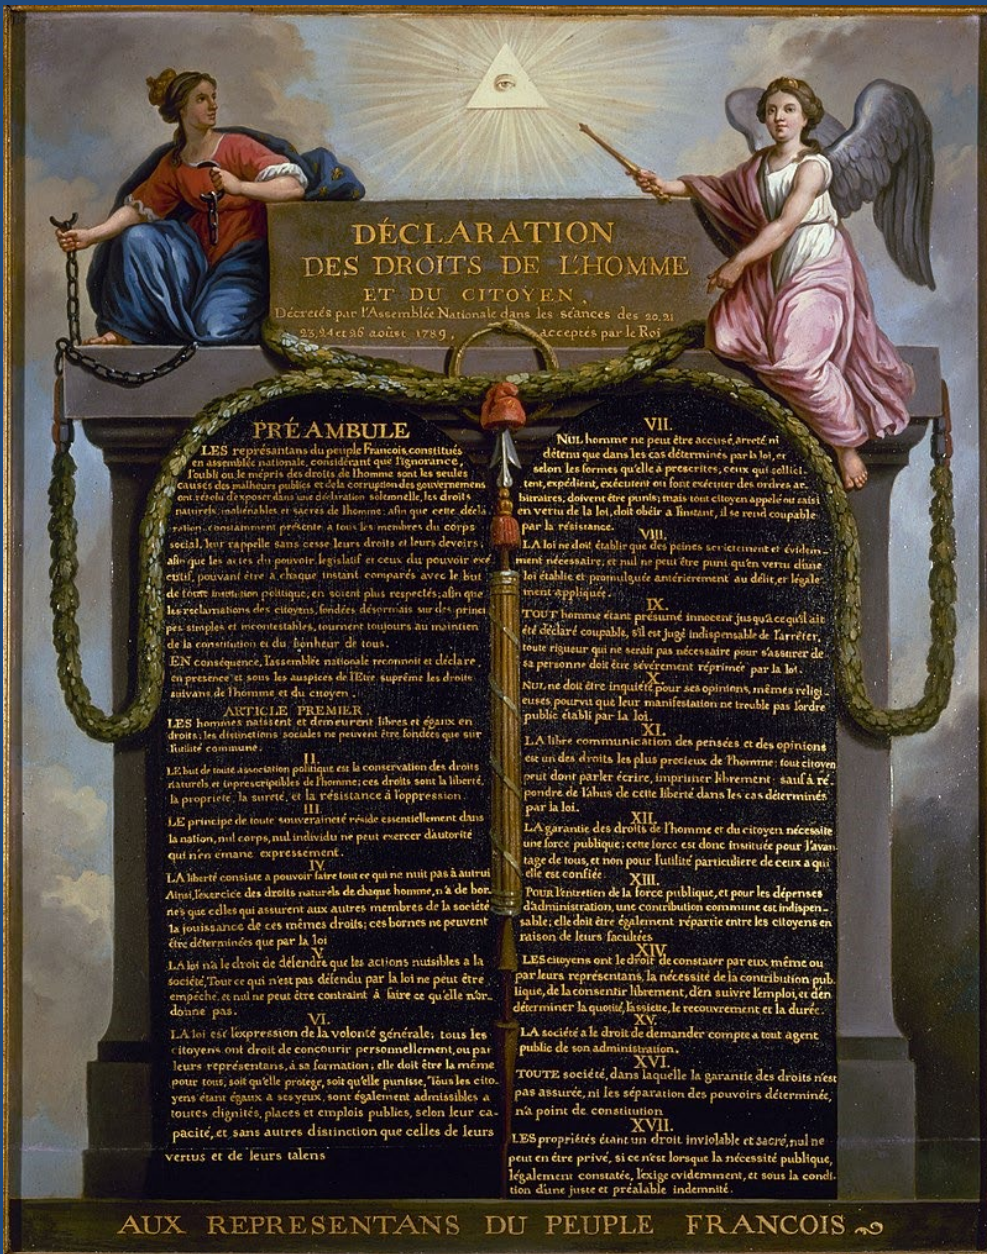 DÉCLARATION
DES DROITS DE L'HOMME
ET DU CITOYEN,
Décretés par l'Assemblée Nationale dans les séances des 20, 21
23, 24 et 26 août 1789, acceptés par le Roi
PRÉAMBULE
LES représentans du peuple François, constitués
en assemblée nationale, considérant que l'ignorance,
l'oubli ou le mépris des droits de l'homme sont les seules
causes des malheurs publics et de la corruption des gouvernemens
ont résolu d'exposer dans une déclaration solemnelle, les droits
naturels, inaliénables et sacrés de l'homme; afin que cette décla
ration, constamment présente à tous les membres du corps
social, leur rappelle sans cesse leurs droits et leurs devoirs,
afin que les actes du pouvoir législatif et ceux du pouvoir exé
cutif, pouvant être à chaque instant comparés avec le but
de toute institution politique, en soient plus respectés; afin que
les reclamations des citoyens, fondées désormais sur des princi
pes simples et incontestables, tournent toujours au maintien
de la constitution et du bonheur de tous.
EN conséquence, l'assemblée nationale reconnoit et déclare,
en presence et sous les auspices de l'Etre suprême les droits
suivans de l'homme et du citoyen.
ARTICLE PREMIER
LES hommes naissent et demeurent libres et égaux en
droits; les distinctions sociales ne peuvent être fondées que sur
l'utilité commune.
II.
LE but de toute association politique est la conservation des droits
naturels et inprescriptibles de l'homme; ces droits sont la liberté,
la propriété, la sureté, et la résistance à l'oppression.
III.
LE principe de toute souveraineté réside essentiellement dans
la nation, nul corps, nul individu ne peut exercer d'autorité
qui n'en émane expressément.
IV.
LA liberté consiste a pouvoir faire tout ce qui ne nuit pas à autrui
Ainsi, l'exercice des droits naturels de chaque homme, n'a de bor-
nes que celles qui assurent aux autres membres de la société
la jouissance de ces mêmes droits; ces bornes ne peuvent
être déterminées que par la loi
V.
LA loi n'a le droit de défendre que les actions nuisibles a la
société, Tout ce qui n'est pas défendu par la loi ne peut être
empêché, et nul ne peut être contraint à faire ce qu'elle n'or-
donne pas.
VI.
LA loi est l'expression de la volonté générale; tous les
citoyens ont droit de concourir personnellement, ou par
leurs représentans, à sa formation; elle doit être la même
pour tous, soit qu'elle protege, soit qu'elle punisse, Tous les cito-
yens étant égaux a ses yeux, sont également admissibles a
toutes dignités, places et emplois publics, selon leur ca-
pacité, et sans autres distinction que celles de leurs
vertus et de leurs talens
VII.
NUL homme ne peut être accusé, arreté ni
détenu que dans les cas déterminés par la loi, et
selon les formes qu'elle à prescrites, ceux qui sollici-
tent, expédient, exécutent ou font exécuter des ordres ar-
bitraires, doivent être punis; mais tout citoyen appelé ou saisi
en vertu de la loi, doit obéir a l'instant, il se rend coupable
par la résistance.
VIII.
LA loi ne doit établir que des peines strictement et évidem-
ment nécessaire, et nul ne peut être puni qu'en vertu d'une
loi établie et promulguée antérieurement au délit, et légale
ment appliquée.
IX.
TOUT homme étant présumé innocent jusqu'a ce qu'il ait
été déclaré coupable, s'il est jugé indispensable de l'arrêter,
toute rigueur qui ne serait pas nécessaire pour s'assurer de
sa personne doit être sévèrement réprimée par la loi.
X.
NUL ne doit être inquiété pour ses opinions, mêmes religi-
euses, pourvu que leur manifestation ne trouble pas l'ordre
public établi par la loi.
XI.
LA libre communication des pensées et des opinions
est un des droits les plus precieux de l'homme; tout citoyen
peut dont parler écrire, imprimer librement; sauf à ré
pondre de l'abus de cette liberté dans les cas déterminés
par la loi.
XII.
LA garantie des droits de l'homme et du citoyen nécessite
une force publique; cette force est donc instituée pour l'avan
tage de tous, et non pour l'utilité particuliere de ceux a qui
elle est confiée.
XIII.
POUR l'entretien de la force publique, et pour les dépenses
d'administration, une contribution commune est indispen-
sable; elle doit être également répartie entre les citoyens en
raison de leurs facultées
XIV.
LES citoyens ont le droit de constater par eux même ou
par leurs représentans, la nécessité de la contribution pub-
lique, de la consentir librement, d'en suivre l'emploi, et d'en
déterminer la quotité, l'assiette, le recouvrement et la durée.
XV.
LA société a le droit de demander compte a tout agent
public de son administration.
XVI.
TOUTE société, dans laquelle la garantie des droits n'est
pas assurée, ni les séparation des pouvoirs déterminée,
n'a point de constitution
XVII.
LES propriétés étant un droit inviolable et sacré, nul ne
peut en être privé, si ce n'est lorsque la nécessité publique,
légalement constatée, l'exige evidemment, et sous la condi-
tion d'une juste et préalable indemnité.
AUX REPRESENTANS DU PEUPLE FRANCOIS